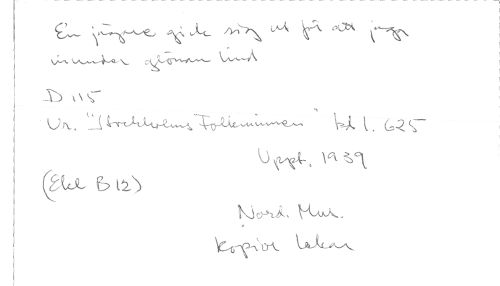 En jägare gick sig ut för att jaga
inunder grönan lind
D 115
Ur. "Stockholms Folkminnen" kl 1. 625
Uppt. 1939
(Ekl B 12)
Nord. Mus.
kopior